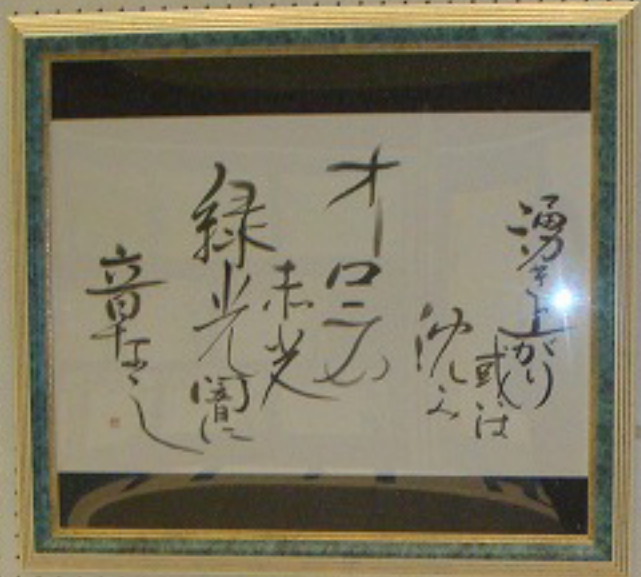 湧き上がり
或は
沈み
オーロラの
赤光
緑光闇に
章なし